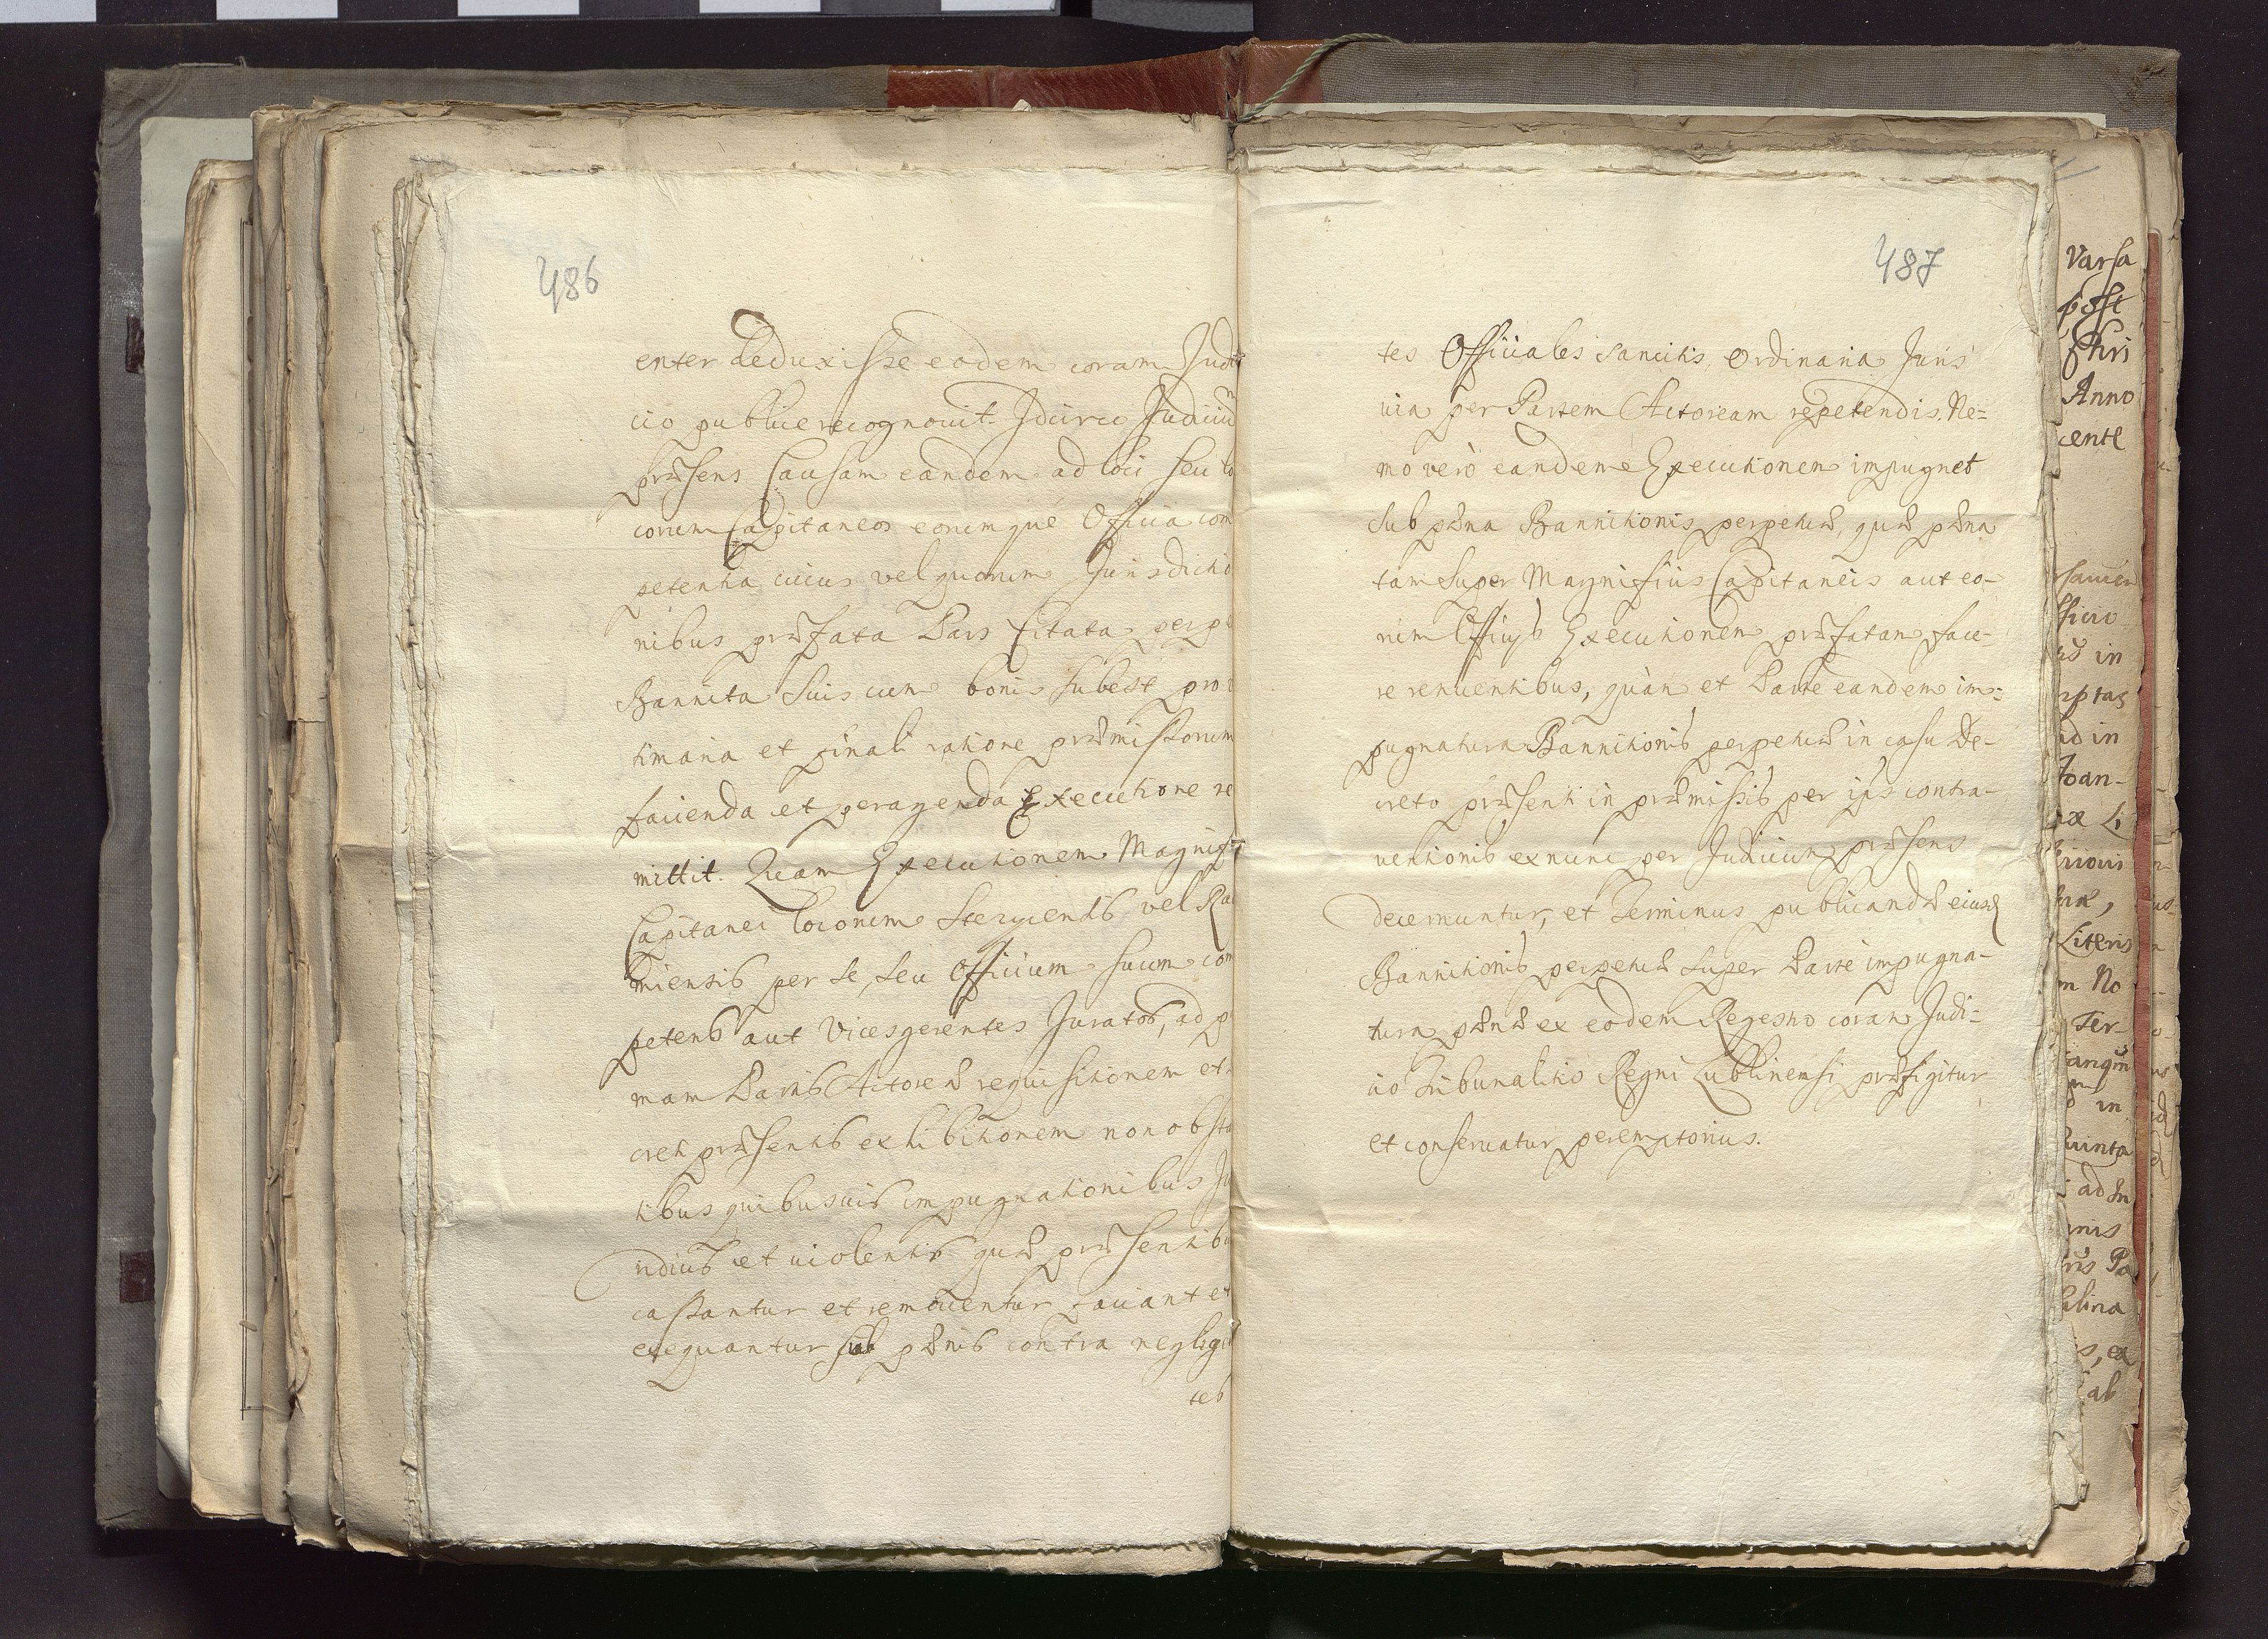 486
enter deduxisse eodem coram Judi
cio publice recognovit. Idcirco Judicium
præsens Causam eandem ad loci seu lo
corum Capitaneos eorumque Officia com
petentia cuius vel quorum Jurisdictio
nibus præfata Pars Citata perpe
Bannita suis cum bonis subest pro
timaria et finali ratione præmissorum
facienda et peragenda Executione re
mittit. Quam Executionem Magnif
Capitanei locorum Stezycensis vel Ra
miensis per se, seu Officium suum com
petens aut Vicesgerentes Juratos, ad p
mam Partis Actoreæ requisitionem et
creti præsentis exhibitionem non obsta
tibus quibusuis impugnationibus Ju
ridicis et uiolentis quæ præsentibu
cassantur et remouentur faciant et
exequantur sub pænis contra neglige
tes
487
tes Officiales sancitis, Ordinaria Juris
uia per Partem Actoream repetendis. Ne-
mo verò eandem Executionem impugnet
sub pæna Bannitionis perpetuæ, quæ pæna
tam super Magnificis Capitaneis aut eo-
rum Officijs Executionem præfatam face-
re renuentibus, quàm et Parte eandem im-
pugnatura Bannitionis perpetuæ in casu De-
creto præsenti in præmissis per ipsos contra-
uentionis ex nunc per Judicium præsens
decernuntur, et Terminus publicandæ eiusd
Bannitionis perpetuæ super Parte impugna-
tura pænæ ex eodem Regestro coram Judi-
cio Tribunalitio Regni Lublinensi præfigitur
et conseruatur peremptorius.
Varsa
post
Chri
Anno
cente
in
ptas
id in
Joan-
Literis
m No
Ter-
in
quinta
ad In
nis
Pa
alina
ab